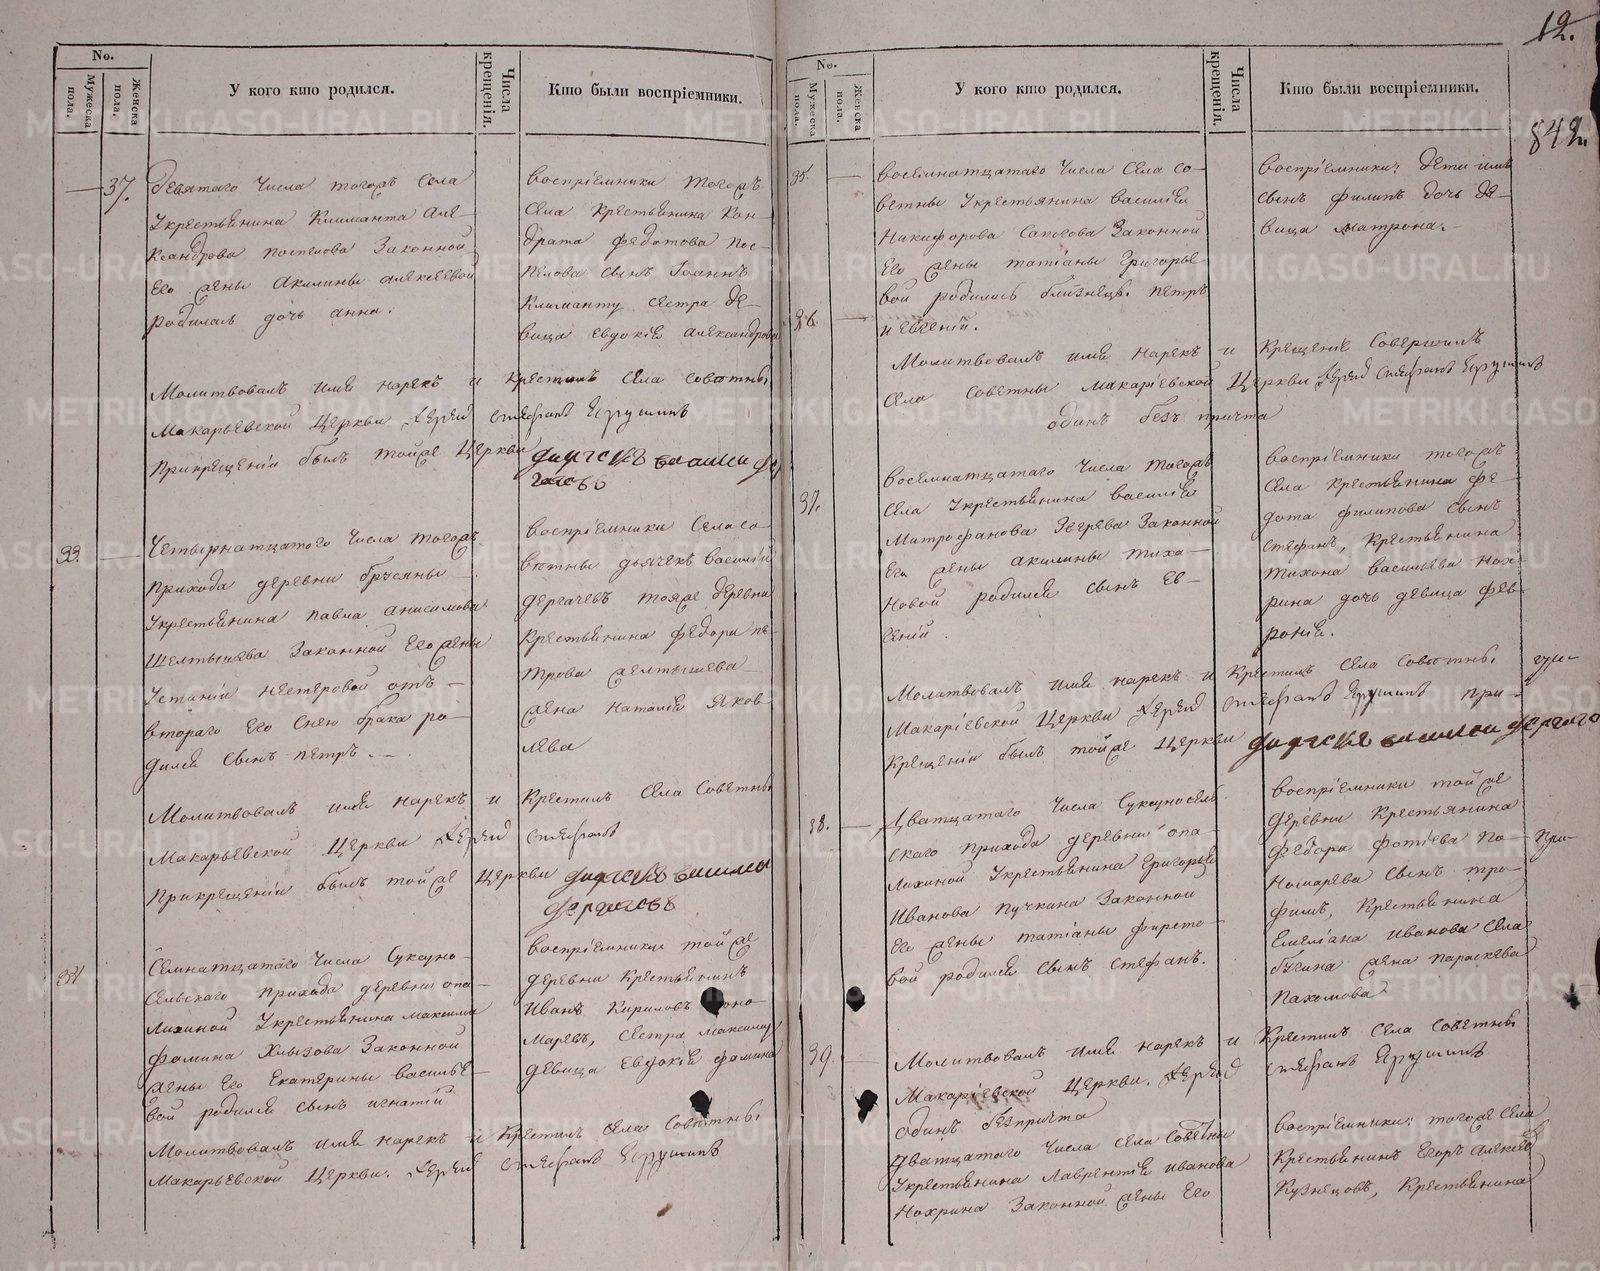 12.
842.
No.
Мужеска пола.
Женска пола.
У кого кто родился.
Числа крещенія.
Кто были воспріемники.
37.
Девятаго Числа тогожъ Села
Укрестьянина Климанта Але-
ксандрова поспелова Законной
Его жены Акилины алексеевой
родилась дочь анна.
воспріемники тогожъ
села Крестьянина Кон-
драта федотова пос-
пелова сынъ Іоаннъ
Климанту сестра де-
вица евдокія александрова
Молитвовалъ имя нарекъ и крестилъ села советны
Макарьевской Церкви Іерей стефанъ
Прикрещеніи былъ тойже Церкви
33.
Четырнатцатого Числа тогожъ
прихода деревни брусяны
Укрестьянина павла анисимова
Шелтышева Законной Его жены
Устиніи нестеровой отъ
втораго его снею брака ро-
дился сынъ петръ.
воспріемники Села со-
ветны дьячекъ василій
дергачевъ тояже деревни
Крестьянина федора пе-
трова
жена наталія Яков-
лева
Молитвовалъ имя нарекъ и Крестилъ села Советны
Макарьевской Церкви Іерей стефанъ
Прикрещеніи былъ тойже Церкви
34
Семнатцатаго Числа Сукоуно-
сельскаго прихода деревни опа-
лихиной Укрестьянина максима
фомина Хлызова Законной
жены Его Екатерины василье-
вой родился сынъ игнатій
воспріемники той же
деревни Крестьянинъ
Иванъ Кириловъ
маревъ, сестра максиму
девица Евдокія фомина
Молитвовалъ имя нарекъ и Крестилъ села Советны
Макарьевской Церкви. Іерей стефанъ
No.
Мужеска пола.
Женска пола.
У кого кто родился.
Числа крещенія.
Кто были воспріемники.
35.
36.
восемнатцатаго Числа села со-
ветны Укрестьянина василия
Никифорова Сапегова Законной
Его жены татіаны Григорье-
вой родились близнецы. петръ
и евгеній.
воспріемники: дети имъ
сынъ филипъ дочь де-
вица матрона.
Молитвовалъ имя нарекъ и Крещеніе Совершилъ
села Советны макаріевской Церкви Іерей стефанъ
одинъ безъ причта
37.
Восемнатцатаго Числа тогожъ
села Укрестьянина василия
митрофанова Зверева Законной
Его жены акилины тихо-
новой родился сынъ ев-
геній.
воспріемники тогожъ
села Крестьянина фе-
дота филипова сынъ
стефанъ, Крестьянина
тихона васильева нох-
рина дочь девица фев-
ронія.
Молитвовалъ имя нарекъ и Крестилъ села Советны
Макаріевской Церкви Іерей стефанъ при-
Крещеніи былъ тойже Церкви
38.
Дватцатаго Числа Сукоуносель-
скаго прихода деревни опа-
лихиной Укрестьянина Григорья
Иванова пучкина Законной
Его жены татіаны
вой родился сынъ стефанъ.
воспріемники той же
деревни Крестьянина
федора фотіева по-
номарева сынъ тро-
фимъ, Крестьянина
Емеліана Иванова села
жена параскева
пахомова
Молитвовалъ имя нарекъ и Крестилъ Села Советны
Макаріевской Церкви. Іерей стефанъ
одинъ безпричта
39.
Дватцатаго Числа села Советны
Укрестьянина Лаврентія иванова
Нохрина Законной жены Его
воспріемники: тогоже села
Крестьянинъ Егоръ алексеевъ
Кузнецовъ, Крестьянина
METRIKI.GASO-URAL.RU